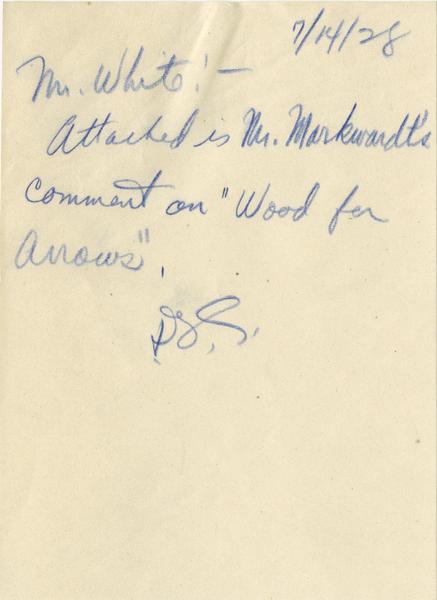 7/14/28
Mr. White! —
Attached is Mr. Markwardt's
comment on "Wood for
Arrows".